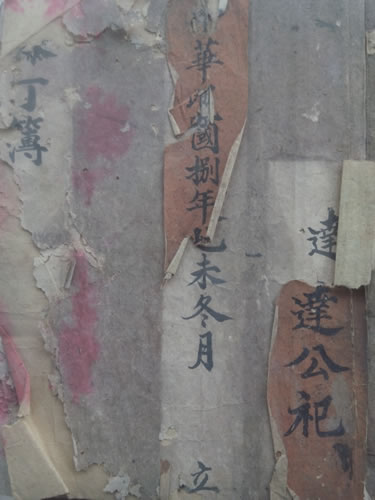 達達公祀
中華民國捌年己未冬月 立
添丁簿